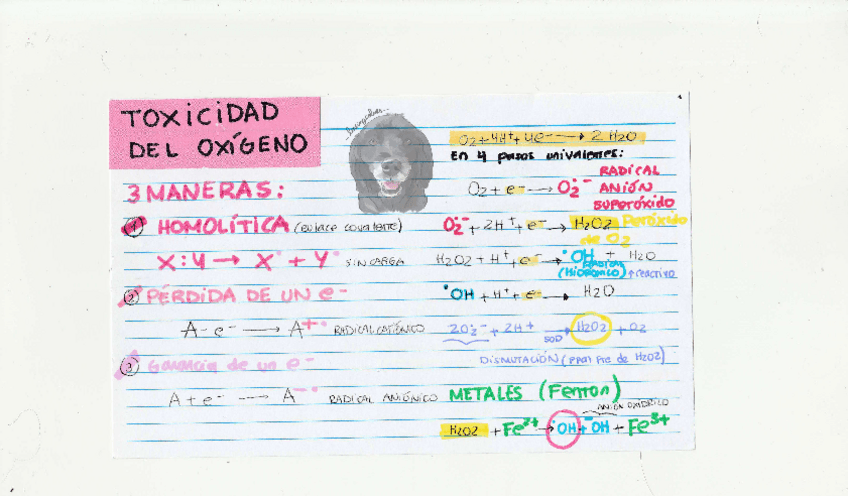 TOXICIDAD
DEL OXÍGENO
3 MANERAS:
① HOMOLÍTICA (enlace covalente)
X:Y → X˙ + Y˙ SIN CARGA
② PÉRDIDA DE UN e-
A - e- → A+• RADICAL CATIÓNICO
③ Ganancia de un e-
A + e- → A-• RADICAL ANIÓNICO
O2 + 4H+ + 4e- → 2 H2O
En 4 pasos univalentes:
O2 + e- → O2•- RADICAL ANIÓN SUPERÓXIDO
O2•- + 2H+ + e- → H2O2 Peróxido de O2
H2O2 + H+ + e- → •OH + H2O
RADICAL (HIDRÓXILO) ↑reactivo
•OH + H+ + e- → H2O
2O2•- + 2H+ → H2O2 + O2
SOD
DISMUTACIÓN (ppal Fte de H2O2)
METALES (Fenton)
ANIÓN OXIDRILO
H2O2 + Fe2+ → •OH + -OH + Fe3+